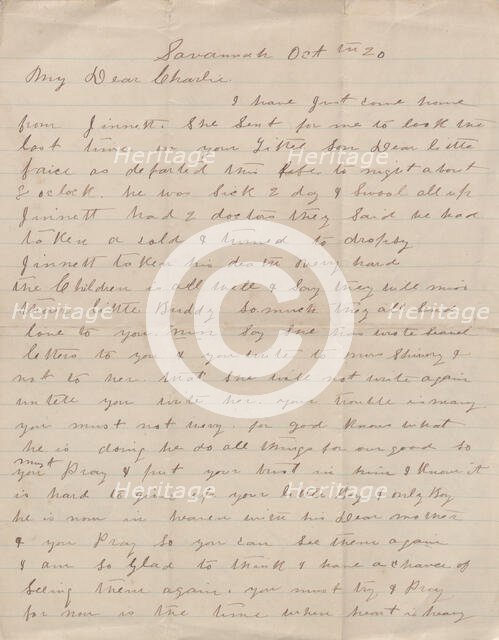 Savannah Oct th 20
My Dear Charlie
I have Just come home
from Jinnett. She Sent for me to look the
last time on your Little Son Dear little
faice as departed this life to night about
2 oclock. he was Sick 2 day & Swool all up
Jinnett had 2 doctors they Said he had
taken a cold & turned to dropsy
Jinnett taken his death very hard
the Children is all well & Say they will miss
their little Buddy So much they all Send
love to you. Say She has wrote Sevel
letters to you & you write to &
not to her. that She will not write again
untele you write her. your trouble is many
you must not wory. for god knows what
he is doing he do all things for our good So
must
you Pray & put your trust in him I know it
is hard to give up your little Boy & only Boy
he is now in heaven with his Dear mother
& you Pray So you can See them again
I am So Glad to think I have a chance of
Seeing them again. you must try & Pray
for now is the time when heart is heavy
Heritage
Heritage
Heritage
Heritage
Heritage
Heritage
C